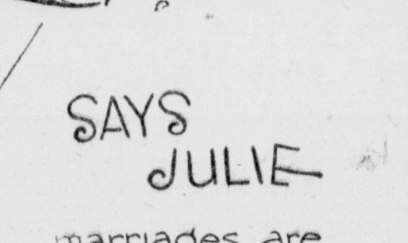 SAYS
JULIE
marriages are